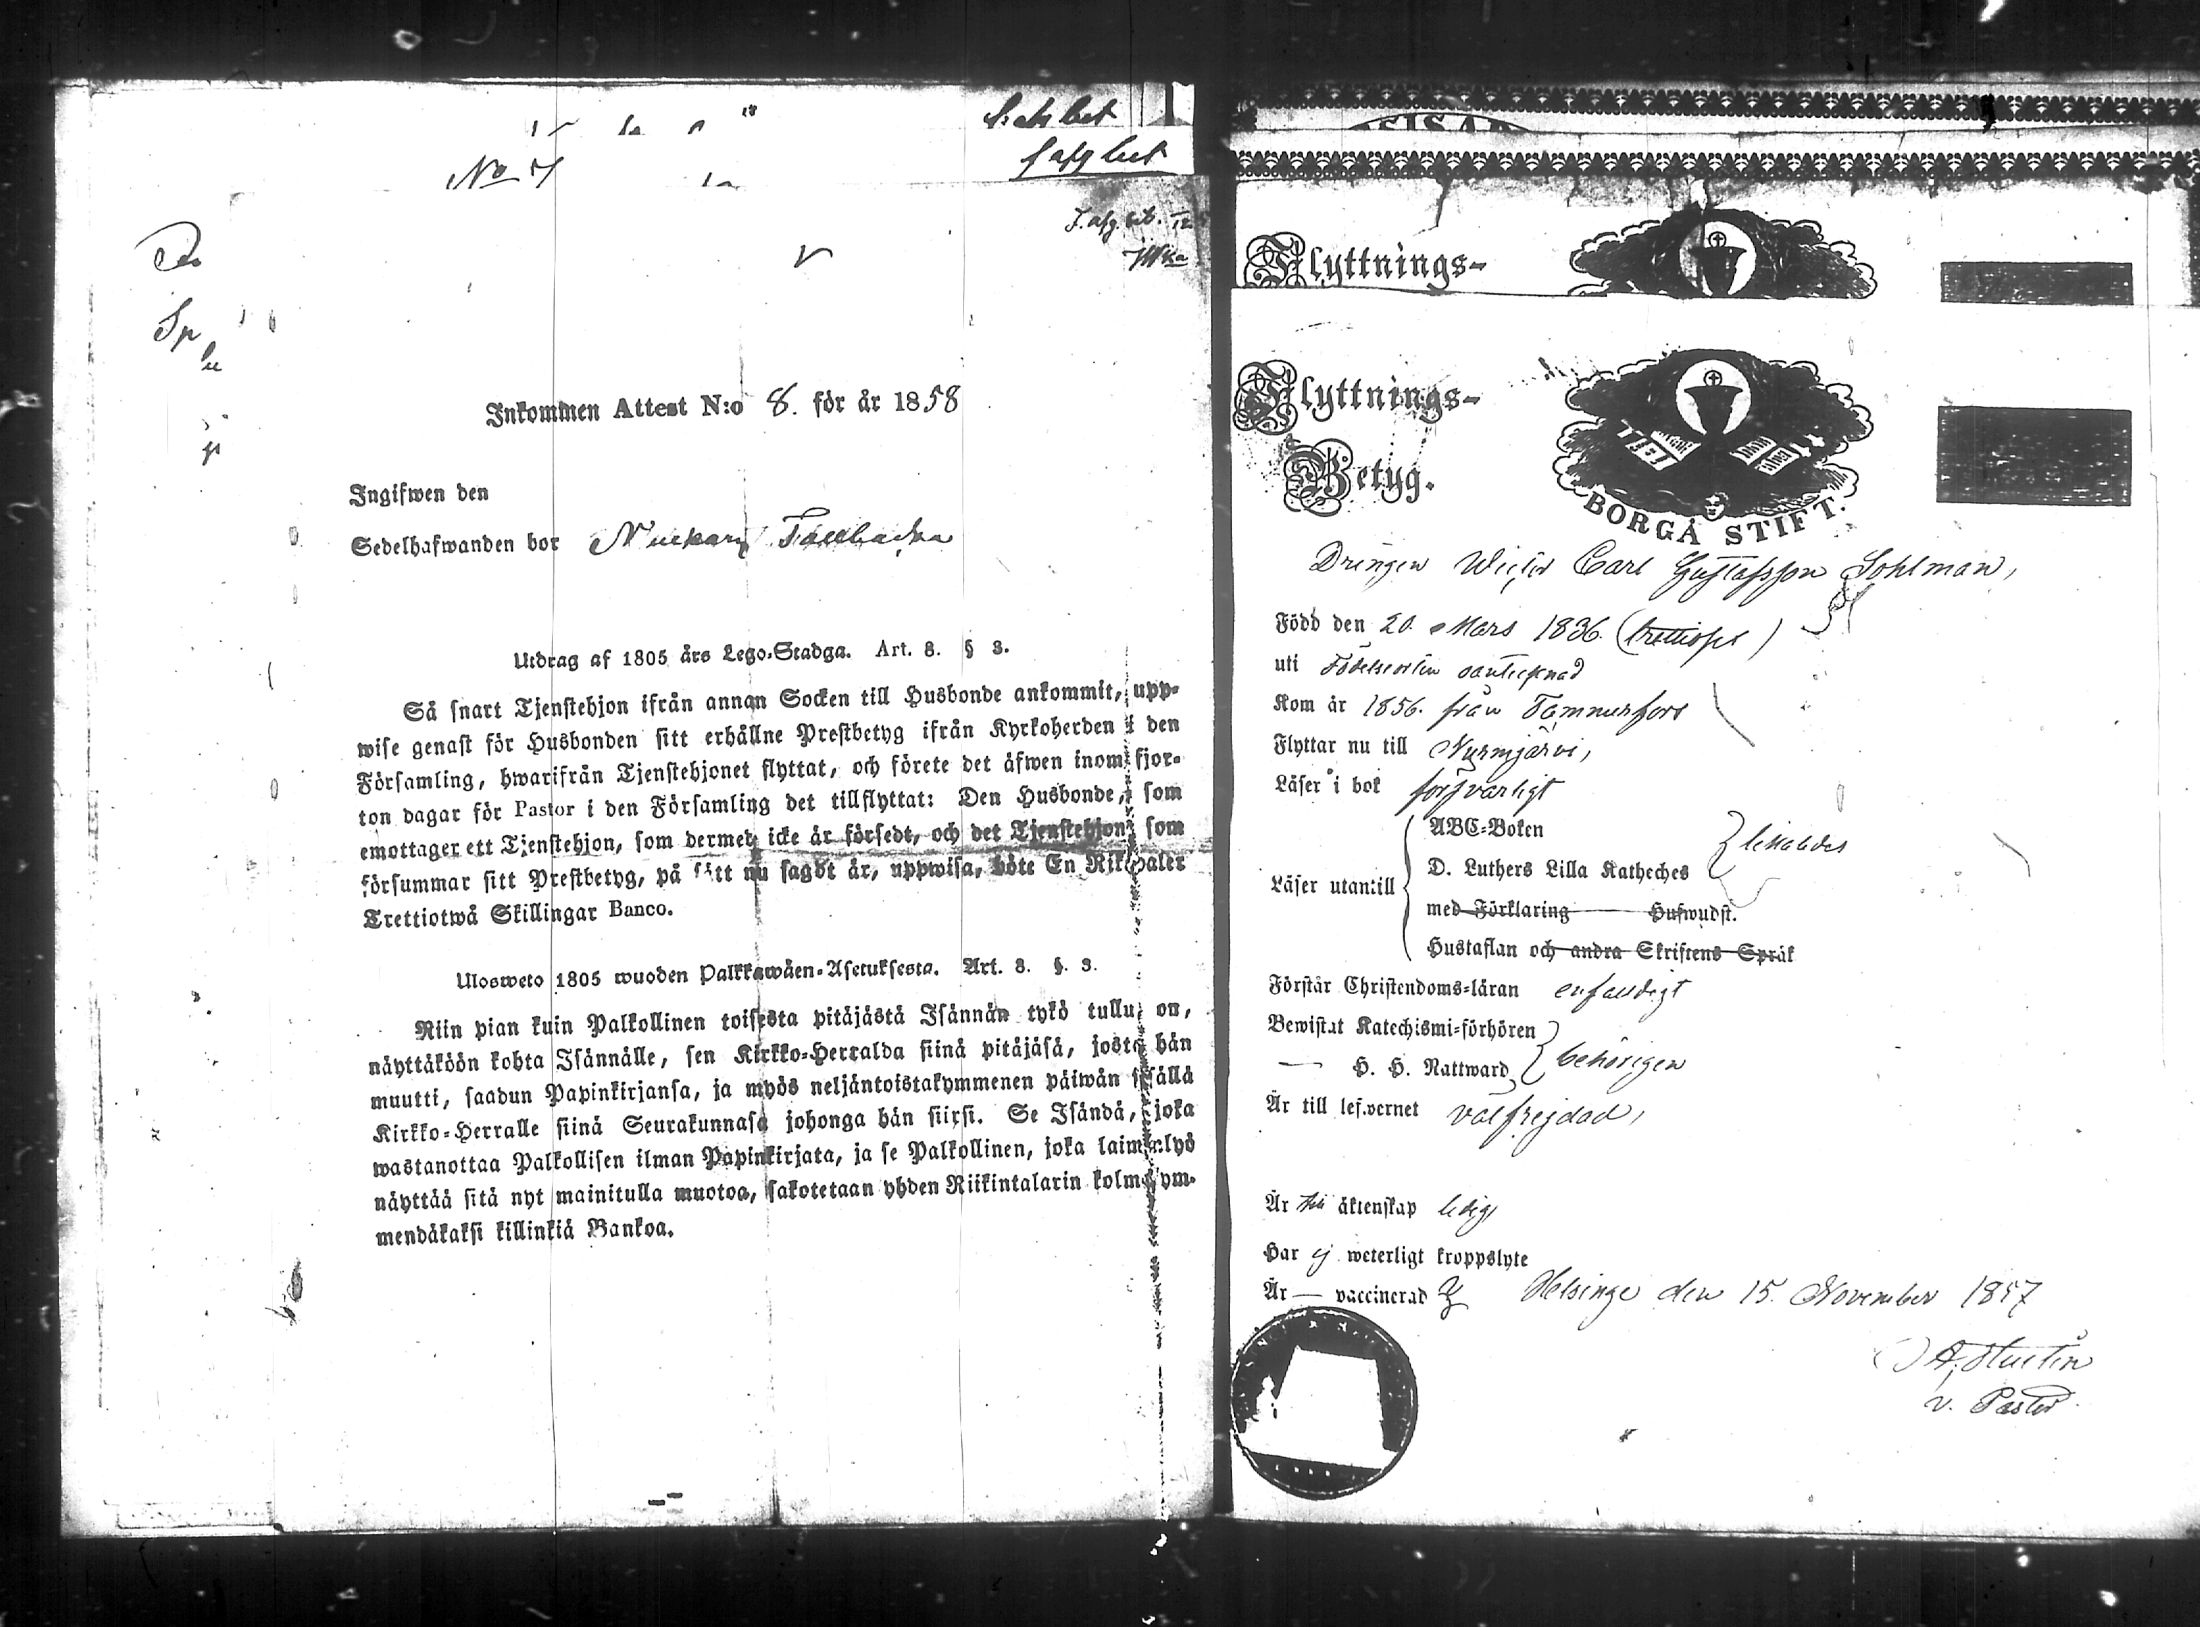 No 7
Inkommen Attest N:o 8. för år 1858
Ingifwen den
Sedelhafwanden bor
Utdrag af 1805 års Lego-Stadga. Art. 8. § 3.
Så snart Tjenstehjon ifrån annan Socken till Husbonde ankommit, upp-
wise genast för Husbonden sitt erhållne Prestbetyg ifrån Kyrkoherden i den
Församling, hwarifrån Tjenstehjonet flyttat, och förete det äfwen inom fjor-
ton dagar för Pastor i den Församling det tillflyttat: Den Husbonde, som
emottager ett Tjenstehjon, som dermed icke är försedt, och det Tjenstehjon, som
försummar sitt Prestbetyg, på sätt nu sagdt är, uppwisa, böte En Riksdaler
Trettiotwå Skillingar Banco.
Ulosweto 1805 wuoden Palkkawäen-Asetuksesta. Art. 8. §. 3.
Niin pian kuin Palkollinen toisesta pitäjästä Isännän tykö tullut on,
näyttäköön kohta Isännälle, sen Kirkko-Herralda siinä pitäjäsä, josta hän
muutti, saadun Papinkirjansa, ja myös neljäntoistakymmenen päiwän sisällä
Kirkko-Herralle siinä Seurakunnasa johonga hän siirsi. Se Isändä, joka
wastanottaa Palkollisen ilman Papinkirjata, ja se Palkollinen, joka laiminlyö
näyttää sitä nyt mainitulla muotoa, sakotetaan yhden Riikintalarin kolmekym-
mendäkaksi killinkiä Bankoa.
Flyttnings-
Flyttnings-
Betyg.
BORGÅ STIFT.
Drängen Carl Gustafsson Sohlman,
Född den 20 Mars 1836 (trettiosex)
uti Födelseorten oantecknad
Kom år 1856. från Tammerfors
Flyttar nu till Nurmijärvi,
Läser i bok försvarligt
Läser utantill
ABC-Boken
D. Luthers Lilla Katheches
likaledes
med Förklaring — Hufwudst.
Hustaflan och andra Skriftens Språk
Förstår Christendoms-läran enfaldigt
Bewistat Katechismi-förhören
— H. H. Nattward
behörigen
Är till lefwernet välfrejdad,
Är till äktenskap ledig
Har ej weterligt kroppslyte
Är — vaccinerad
Helsinge den 15. November 1857
v. Pastor.